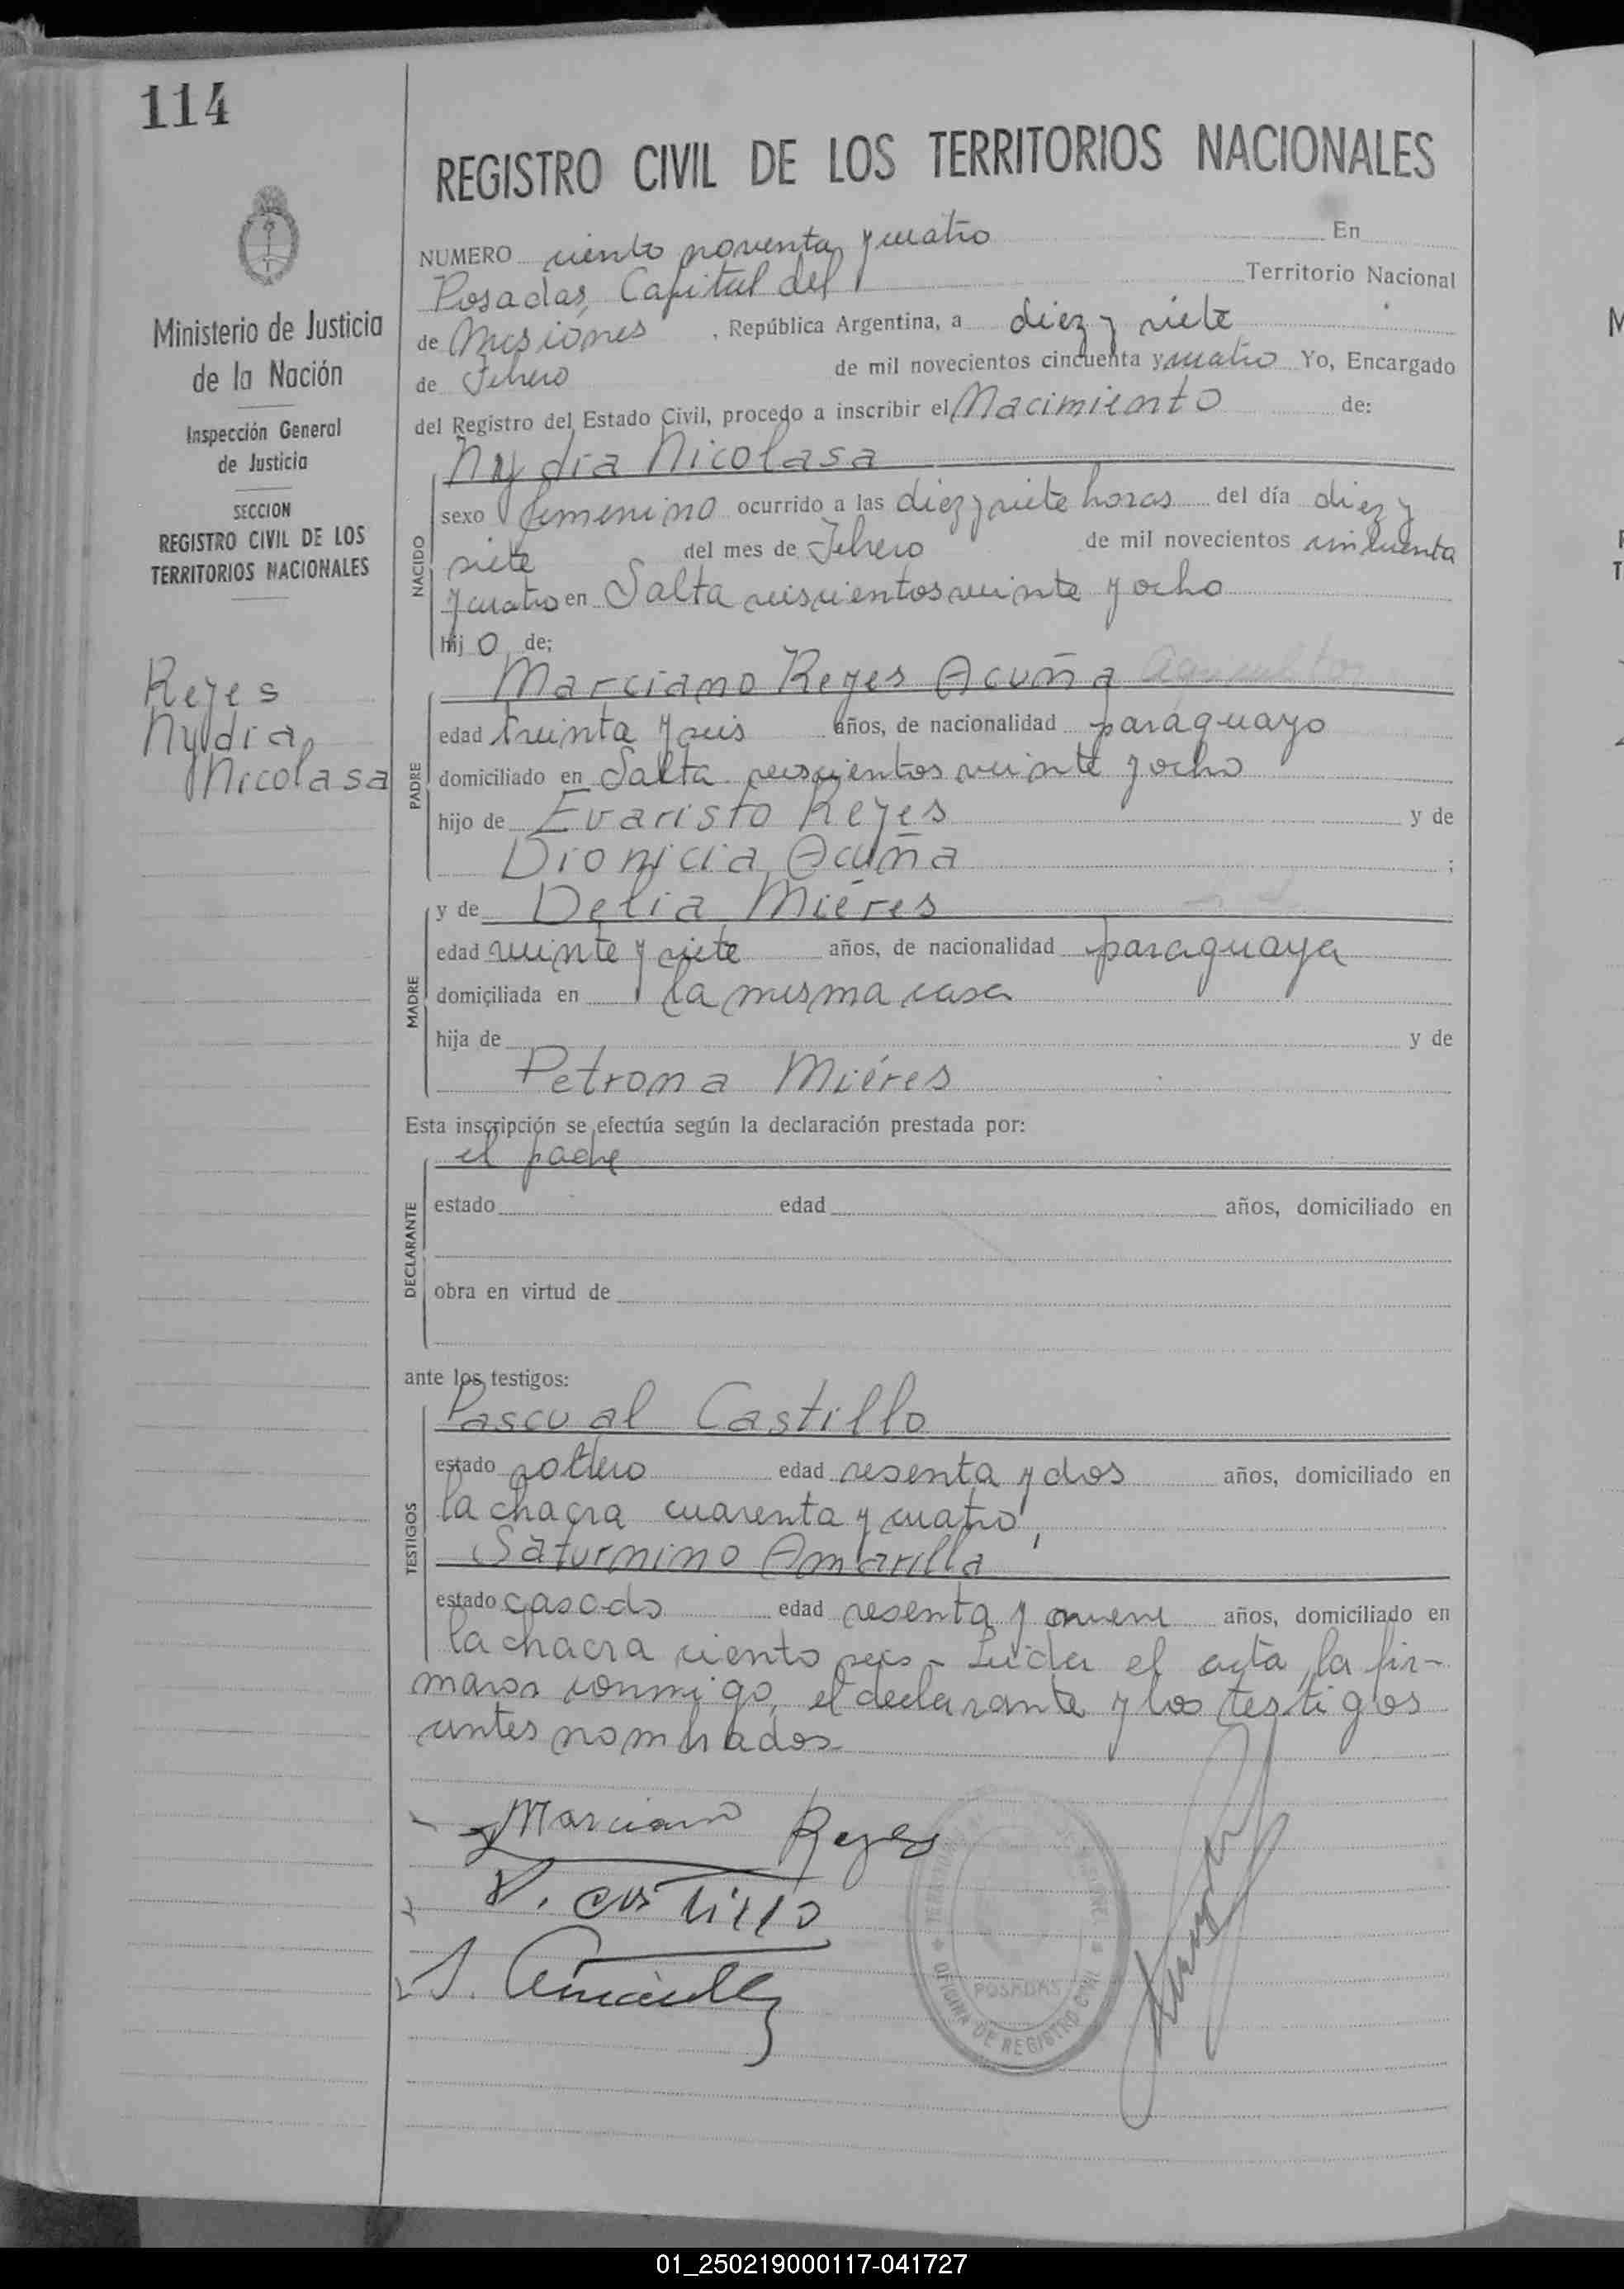 114
REGISTRO CIVIL DE LOS TERRITORIOS NACIONALES
Ministerio de Justicia
de la Nación
Inspección General
de Justicia
SECCION
REGISTRO CIVIL DE LOS
TERRITORIOS NACIONALES
Reyes
Nydia
Nicolasa
NUMERO ciento noventa y cuatro En
Posadas, Capital del Territorio Nacional
de Misiones, República Argentina, a diez y siete
de Febrero de mil novecientos cincuenta y cuatro Yo, Encargado
del Registro del Estado Civil, procedo a inscribir el Nacimiento de:
NACIDO
Nydia Nicolasa
sexo femenino ocurrido a las diez y siete horas del día diez y
siete del mes de Febrero de mil novecientos cincuenta
y cuatro en Salta seiscientos veinte y ocho
hij o de;
PADRE
Marciano Reyes Acuña Agricultor
edad treinta y seis años, de nacionalidad paraguayo
domiciliado en Salta seiscientos veinte y ocho
hijo de Evaristo Reyes y de
Dionicia Acuña ;
MADRE
y de Delia Miéres
edad veinte y siete años, de nacionalidad paraguaya
domiciliada en la misma casa
hija de y de
Petrona Miéres
Esta inscripción se efectúa según la declaración prestada por:
DECLARANTE
el padre
estado edad años, domiciliado en
obra en virtud de
ante los testigos:
TESTIGOS
Pascual Castillo
estado soltero edad sesenta y dos años, domiciliado en
la chacra cuarenta y cuatro,
Saturnino Amarilla
estado casado edad sesenta y nueve años, domiciliado en
la chacra ciento seis - Leida el acta, la fir-
maron conmigo, el declarante y los testigos
antes nombrados
Marciano Reyes
P. Castillo
S. Amarilla
POSADAS
OFICINA DE REGISTRO CIVIL
01_250219000117-041727